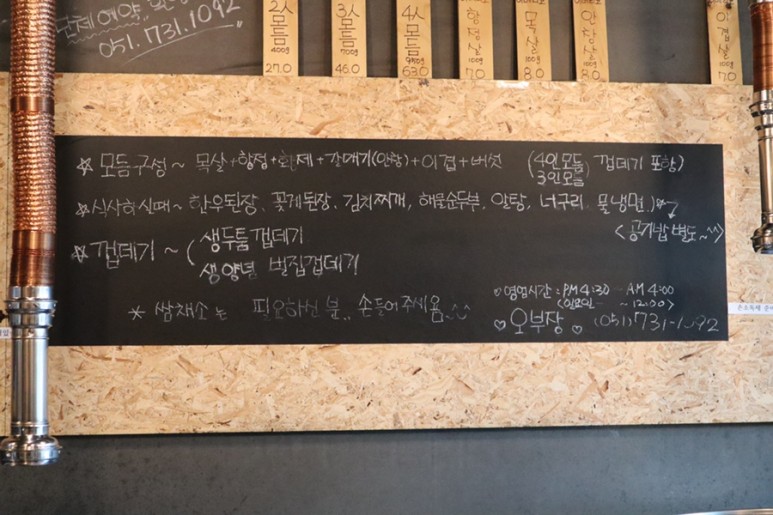 단체예약..
051.731.1092
2人 모듬 400g 27.0
3人 모듬 700g 45.0
4人 모듬 950g 63.0
항정살 100g 7.0
목살 100g 8.0
안창살 100g 8.0
이겹살 100g 7.0
☆ 모듬구성~ 목살+항정+황제+갈매기(안창)+이겹+버섯 (4인모듬 껍데기 포함)
3인모듬
☆식사하실때~ 한우된장, 꽃게된장, 김치찌개, 해물순두부, 알탕, 너구리, 물냉면.)
<공기밥 별도~^^>
☆ 껍데기~ (생두툼껍데기
생양념 벌집껍데기
* 쌈채소는 필요하신 분.. 손들어주세욤
♡영업시간 : PM 4:30 ~ AM 4:00
<일요일 ~ 12:00>
♡오부장♡ (051)731-1092